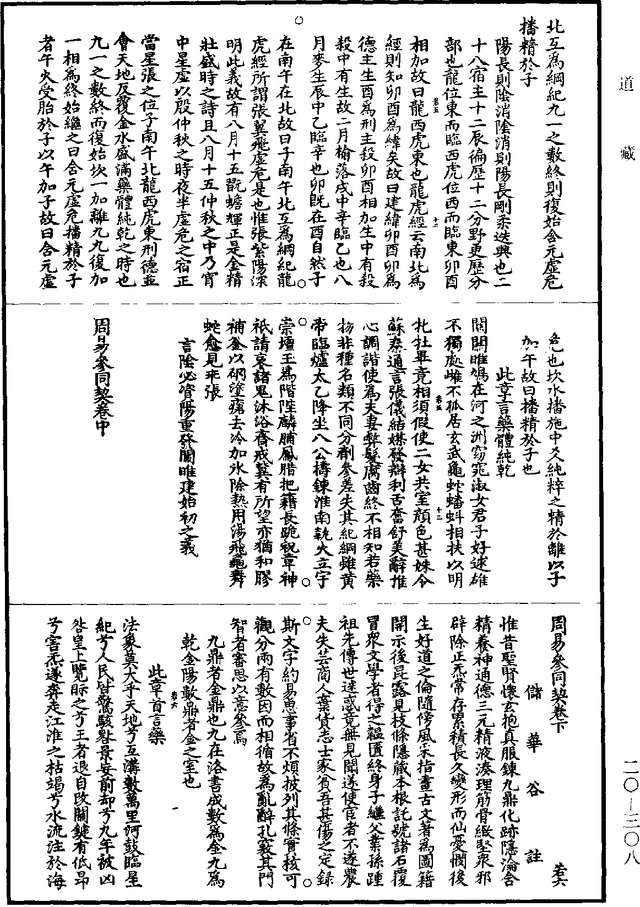 道藏
北互爲綱紀九一之數終則復始含元虛危
播精於子
陽長則陰消陰消則陽長剛柔迭興也二
十八宿主十二辰徧歷十二分野更歷分
部也龍位東而臨西虎位西而臨東卯酉
相加故曰龍西虎東也龍虎經云南北爲
經則知卯酉爲緯矣故曰建緯卯酉卯爲
德主生酉爲刑主殺卯酉相加生中有殺
殺中有生故二月榆落戌中辛臨乙也八
月麥生辰中乙臨辛也卯既在酉自然子
在南午在北故曰子南午北互爲綱紀龍
虎經所謂張翼飛虛危是也惟張紫陽深
明此義故有八月十五翫蟾輝正是金精
壯盛時之詩且八月十五仲秋之中乃宵
中星虛以殷仲秋之時夜半虛危之宿正
當星張之位子南午北龍西虎東刑德並
會天地反覆金水盛滿藥體純乾之時也
九一之數終而復始坎一加離九九復加
一相爲終始繼之曰含元虛危播精於子
者午火受胎於子以午加子故曰含元虛
危也坎水播施中爻純粹之精於離以子
加午故曰播精於子也
此章言藥體純乾
關關雎鳩在河之洲窈窕淑女君子好逑雄
不獨處雌不孤居玄武龜蛇蟠蚪相扶以明
牝牡畢竟相須假使二女共室顏色甚姝令
蘇秦通言張儀結媒發辯利舌奮舒美辭推
心調諧使爲夫妻弊髮腐齒終不相知若藥
物非種名類不同分劑參差失其紀綱雖黃
帝臨爐太乙降坐八公擣鍊淮南執火立宇
崇壇玉爲階陛麟脯鳳腊把籍長跪祝章神
祇請哀諸鬼沐浴齋戒冀有所望亦猶和膠
補釜以硇塗瘡去冷加冰除熱用湯飛龜舞
蛇愈見乖張
言陰必資陽重發關雎建始初之義
周易參同契卷中
周易參同契卷下
若六
儲華谷註
惟昔聖賢懷玄抱真服鍊九鼎化跡隱淪含
精養神通德三元精液湊理筋骨緻堅衆邪
辟除正炁常存累積長久變形而仙憂憫後
生好道之倫隨傍風采指畫古文著爲圖籍
開示後昆露見枝條隱藏本根託號諸石覆
冒衆文學者得之韞匱終身子繼父業孫踵
祖先傳世迷惑竟無見聞遂使宦者不遂農
夫失芸商人棄貨志士家貧吾甚傷之定錄
斯文字約易思事省不煩披列其條實核可
觀分兩有數因而相循故爲亂辭孔竅其門
智者審思以意參焉
九鼎者金鼎也九在洛書成數爲金九爲
乾金陽數鼎者金之室也
此章首言藥
法象莫大乎天地兮玄溝數萬里河鼓臨星
紀兮人民皆驚駭晷景妄前却兮九年被凶
咎皇上覽眎之兮王者退自改關鍵有低昂
兮害炁遂奔走江淮之枯竭兮水流注於海
二〇-三〇八